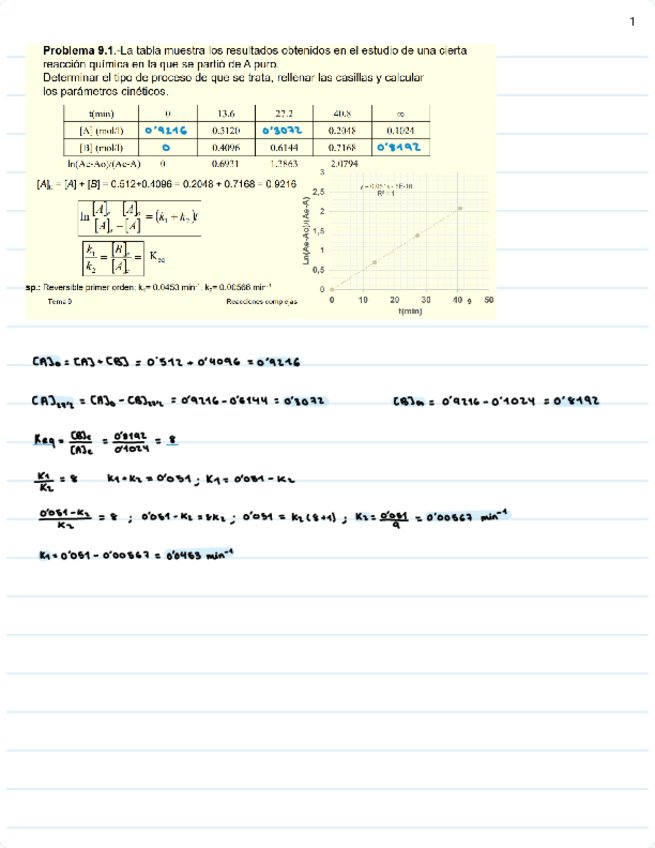 1
Problema 9.1.-La tabla muestra los resultados obtenidos en el estudio de una cierta
reacción química en la que se partió de A puro.
Determinar el tipo de proceso de que se trata, rellenar las casillas y calcular
los parámetros cinéticos.
t(min) 0 13.6 27.2 40.8 ∞
[A] (mol/l) 0'9216 0.5120 0'3072 0.2048 0.1024
[B] (mol/l) 0 0.4096 0.6144 0.7168 0'8192
ln(Ae-Ao)/(Ae-A) 0 0.6931 1.3863 2.0794
[A]₀ = [A] + [B] = 0.512+0.4096 = 0.2048 + 0.7168 = 0.9216
ln [A]₀ - [A]ₑ / [A]ₑ - [A] = (k₁ + k₂)t
k₁/k₂ = [B]ₑ/[A]ₑ = K_eq
sp.: Reversible primer orden; k₁= 0.0453 min⁻¹, k₂= 0.00566 min⁻¹
Tema 9 Reacciones complejas 9
Ln(Ae-Ao)/(Ae-A)
3
2,5
2
1,5
1
0,5
0
R² = 1
0 10 20 30 40 50
t(min)
[A]₀ = [A] + [B] = 0'512 + 0'4096 = 0'9216
[A]₂₇'₂ = [A]₀ - [B]₂₇'₂ = 0'9216 - 0'6144 = 0'3072 [B]∞ = 0'9216 - 0'1024 = 0'8192
Keq = [B]e/[A]e = 0'8192/0'1024 = 8
K1/K2 = 8 K1 + K2 = 0'051 ; K1 = 0'051 - K2
0'051-K2/K2 = 8 ; 0'051 - K2 = 8K2 ; 0'051 = K2 (8+1) ; K2 = 0'051/9 = 0'00567 min⁻¹
K1 = 0'051 - 0'00567 = 0'0453 min⁻¹